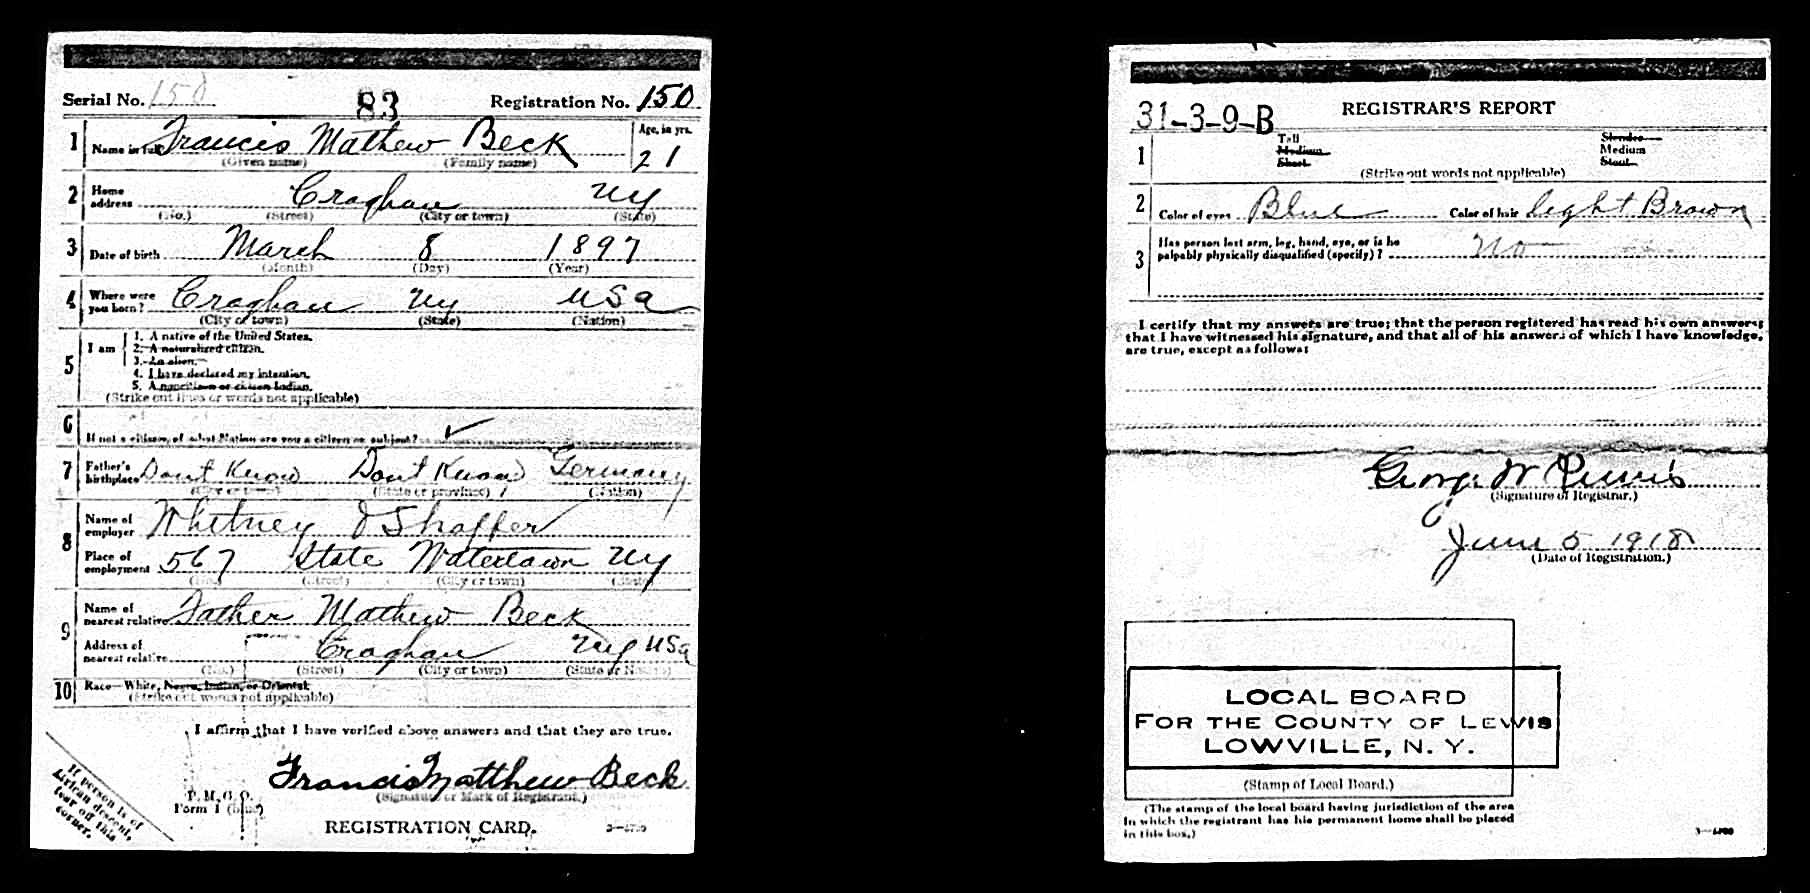 Serial No. 150 83 Registration No. 150
1 Name in full Francis Mathew Beck Age, in yrs. 21
(Given name) (Family name)
2 Home address Croghan NY
(No.) (Street) (City or town) (State)
3 Date of birth March 8 1897
(Month) (Day) (Year)
4 Where were you born? Croghan NY USA
(City or town) (State) (Nation)
5 I am
1. A native of the United States.
2. A naturalized citizen.
3. An alien.
4. I have declared my intention.
5. A noncitizen or citizen Indian.
(Strike out lines or words not applicable)
6 If not a citizen, of what Nation are you a citizen or subject? ✓
7 Father's birthplace Dont Know Dont Know Germany
(City or town) (State or province) (Nation)
8 Name of employer Whitney J Shaffer
Place of employment 567 State Watertown NY
(No.) (Street) (City or town) (State)
9 Name of nearest relative Father Mathew Beck
Address of nearest relative Croghan NY USA
(No.) (Street) (City or town) (State or Nation)
10 Race—White, Negro, Indian, or Oriental
(Strike out words not applicable)
I affirm that I have verified above answers and that they are true.
Francis Matthew Beck
(Signature or Mark of Registrant.)
P. M. G. O.
Form 1 (blue)
REGISTRATION CARD.
If person is of
African descent,
tear off this
corner.
31-3-9-B REGISTRAR'S REPORT
1 Tall Slender
Medium Medium
Short Stout
(Strike out words not applicable)
2 Color of eyes Blue Color of hair light Brown
3 Has person lost arm, leg, hand, eye, or is he
palpably physically disqualified (specify)? No
I certify that my answers are true; that the person registered has read his own answers;
that I have witnessed his signature, and that all of his answers of which I have knowledge,
are true, except as follows:
George W
(Signature of Registrar.)
June 5 1918
(Date of Registration.)
LOCAL BOARD
FOR THE COUNTY OF LEWIS
LOWVILLE, N. Y.
(Stamp of Local Board.)
(The stamp of the local board having jurisdiction of the area
in which the registrant has his permanent home shall be placed
in this box.)